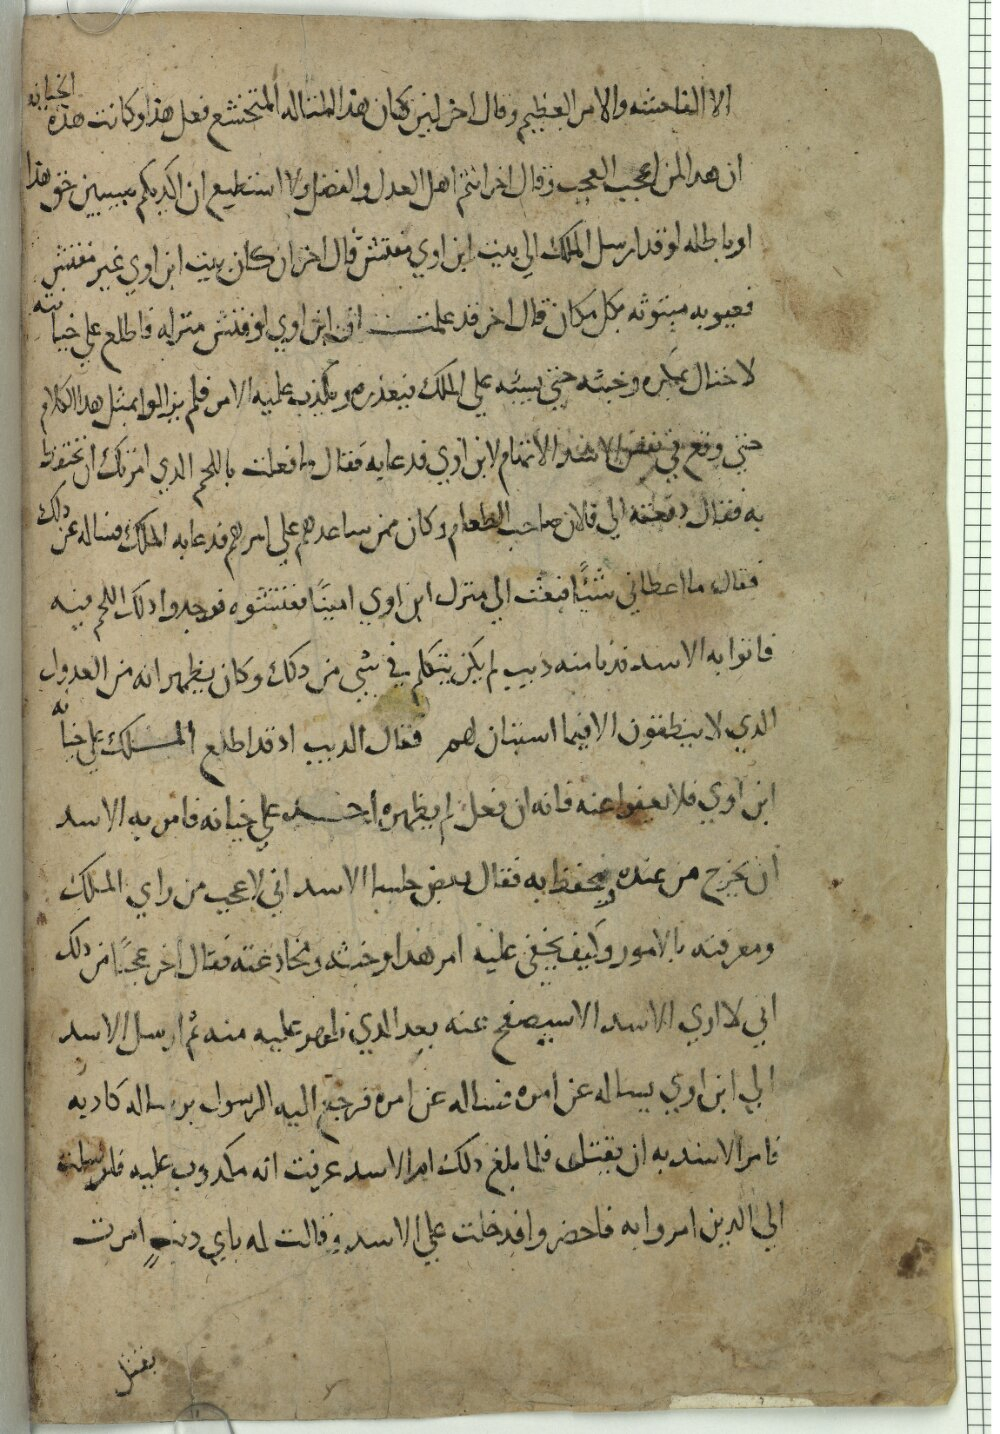 الا الفاحشه والامر العظيم وقال اخر لين كان هذا المتاله المتخشع فعل هذا وكانت هذه الخيانه
ان هذا لمن اعجب العجب وقال اخر انتم اهل العدل والفضل ولا استطيع ان اكذبكم سيبين حق هذا
او باطله لو قد ارسل الملك الي بيت ابن اوي مفتش قال اخر ان كان بيت ابن اوي غير مفتش
فعيوبه مبثوثه بكل مكان قال اخر قد علمت ان ابن اوي لو فتش منزله فاطلع علي خيانته
لاحتال بمكره وخبثه حتي يشبه علي الملك فيعذره ويكذب عليه الامر فلم يزالوا بمثل هذا الكلام
حتي وقع في نفس الاسد الاتهام لابن اوي فدعا به فقال ما فعلت باللحم الذي امرتك ان تحتفظ
به فقال دفعته الي فلان صاحب الطعام وكان ممن ساعدهم علي امرهم فدعا به الملك فساله عن ذلك
فقال ما اعطاني شيًا فبعث الي منزل ابن اوي امينًا ففتشوه فوجدوا ذلك اللحم فيه
فاتوا به الاسد فدنا منه ذيب لم يكن يتكلم في شي من ذلك وكان يظهر انه من العدول
الذي لا ينطقون الا فيما استبان لهم فقال الديب اد قد اطلع الملك علي خيانه
ابن اوي فلا يعفوا عنه فانه ان فعل لم يظهره احد علي خيانه فامر به الاسد
ان يخرج من عنده ويحفظ به فقال بعض جلسا الاسد اني لاعجب من راي الملك
ومعرفته بالامور وكيف يخفي عليه امر هدا وخبثه ومخادعته فقال اخر عجبًا من دلك
اني لا اري الاسد الا سيصفح عنه بعد الدي ظهر عليه منه ثم ارسل الاسد
الي ابن اوي يساله عن امره فساله عن امره فرجع اليه الرسول برساله كاديه
فامر الاسد به ان يقتل فلما بلغ دلك ام الاسد عرفت انه مكدوب عليه فارسلت
الي الدين امروا به فاحضروا فدخلت علي الاسد وقالت له باي دنبٍ امرت
بقتل